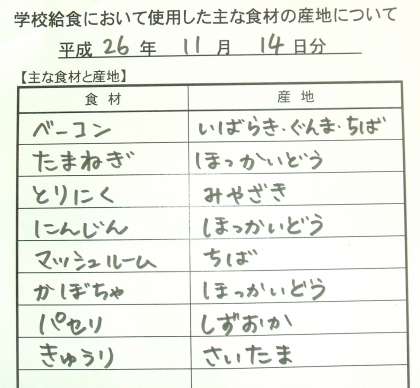 学校給食において使用した主な食材の産地について
平成 26 年 11 月 14 日分
【主な食材と産地】
食材 産地
ベーコン いばらき・ぐんま・ちば
たまねぎ ほっかいどう
とりにく みやざき
にんじん ほっかいどう
マッシュルーム ちば
かぼちゃ ほっかいどう
パセリ しずおか
きゅうり さいたま